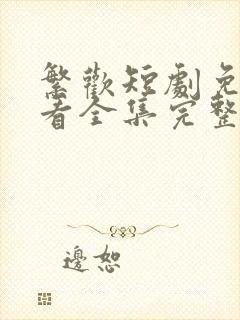 繁歡短劇免
看全集完整
邊恕